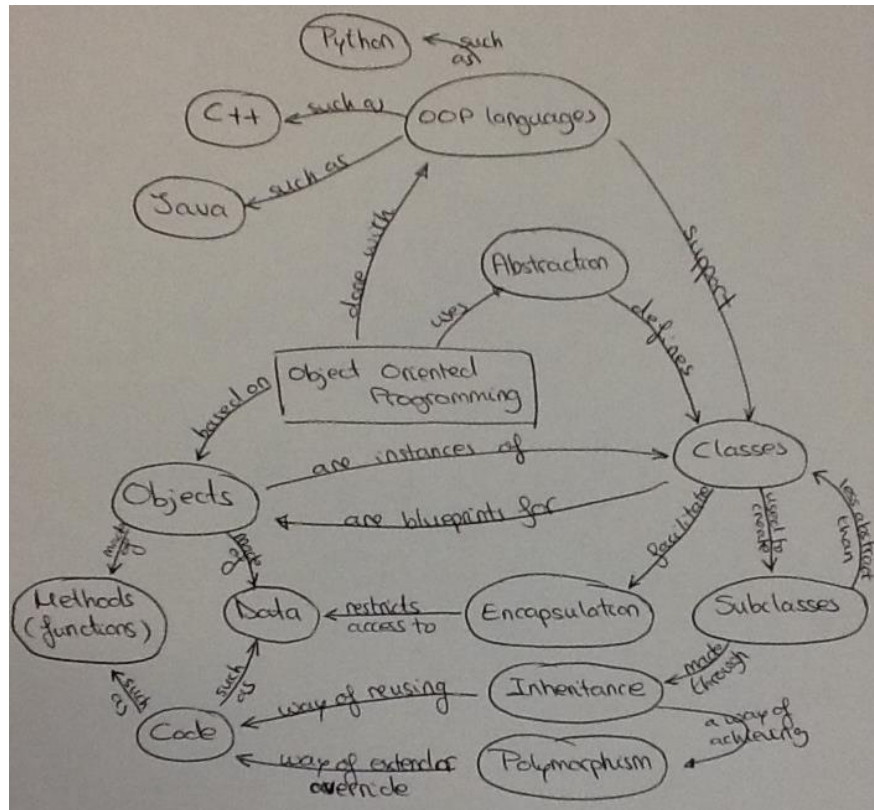 Python
such
as
C++
such as
OOP languages
Java
such as
done with
support
Abstraction
uses
defines
Object Oriented
Programming
based on
are instances of
Classes
Objects
are blueprints for
made
of
made
of
facilitate
used to
create
less abstract
than
Methods
(functions)
Data
restricts
access to
Encapsulation
Subclasses
such
as
such
as
made
through
Code
way of reusing
Inheritance
a way of
achieving
way of extend or
override
Polymorphism